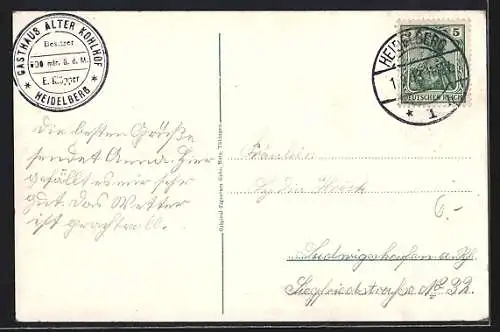 GASTHAUS ALTER KOHLHOF
Besitzer
500 mtr. ü. d. M.
E. Klöpper
* HEIDELBERG *
HEIDELBERG
* 1
5
DEUTSCHES REICH
Die besten Grüße
sendet Anna. Hier
gefällt es mir sehr
gut. Das Wetter
ist prachtvoll.
Fräulein
Lydia
Ludwigshafen a. Rh.
Siegfriedstraße No 32.
6.-